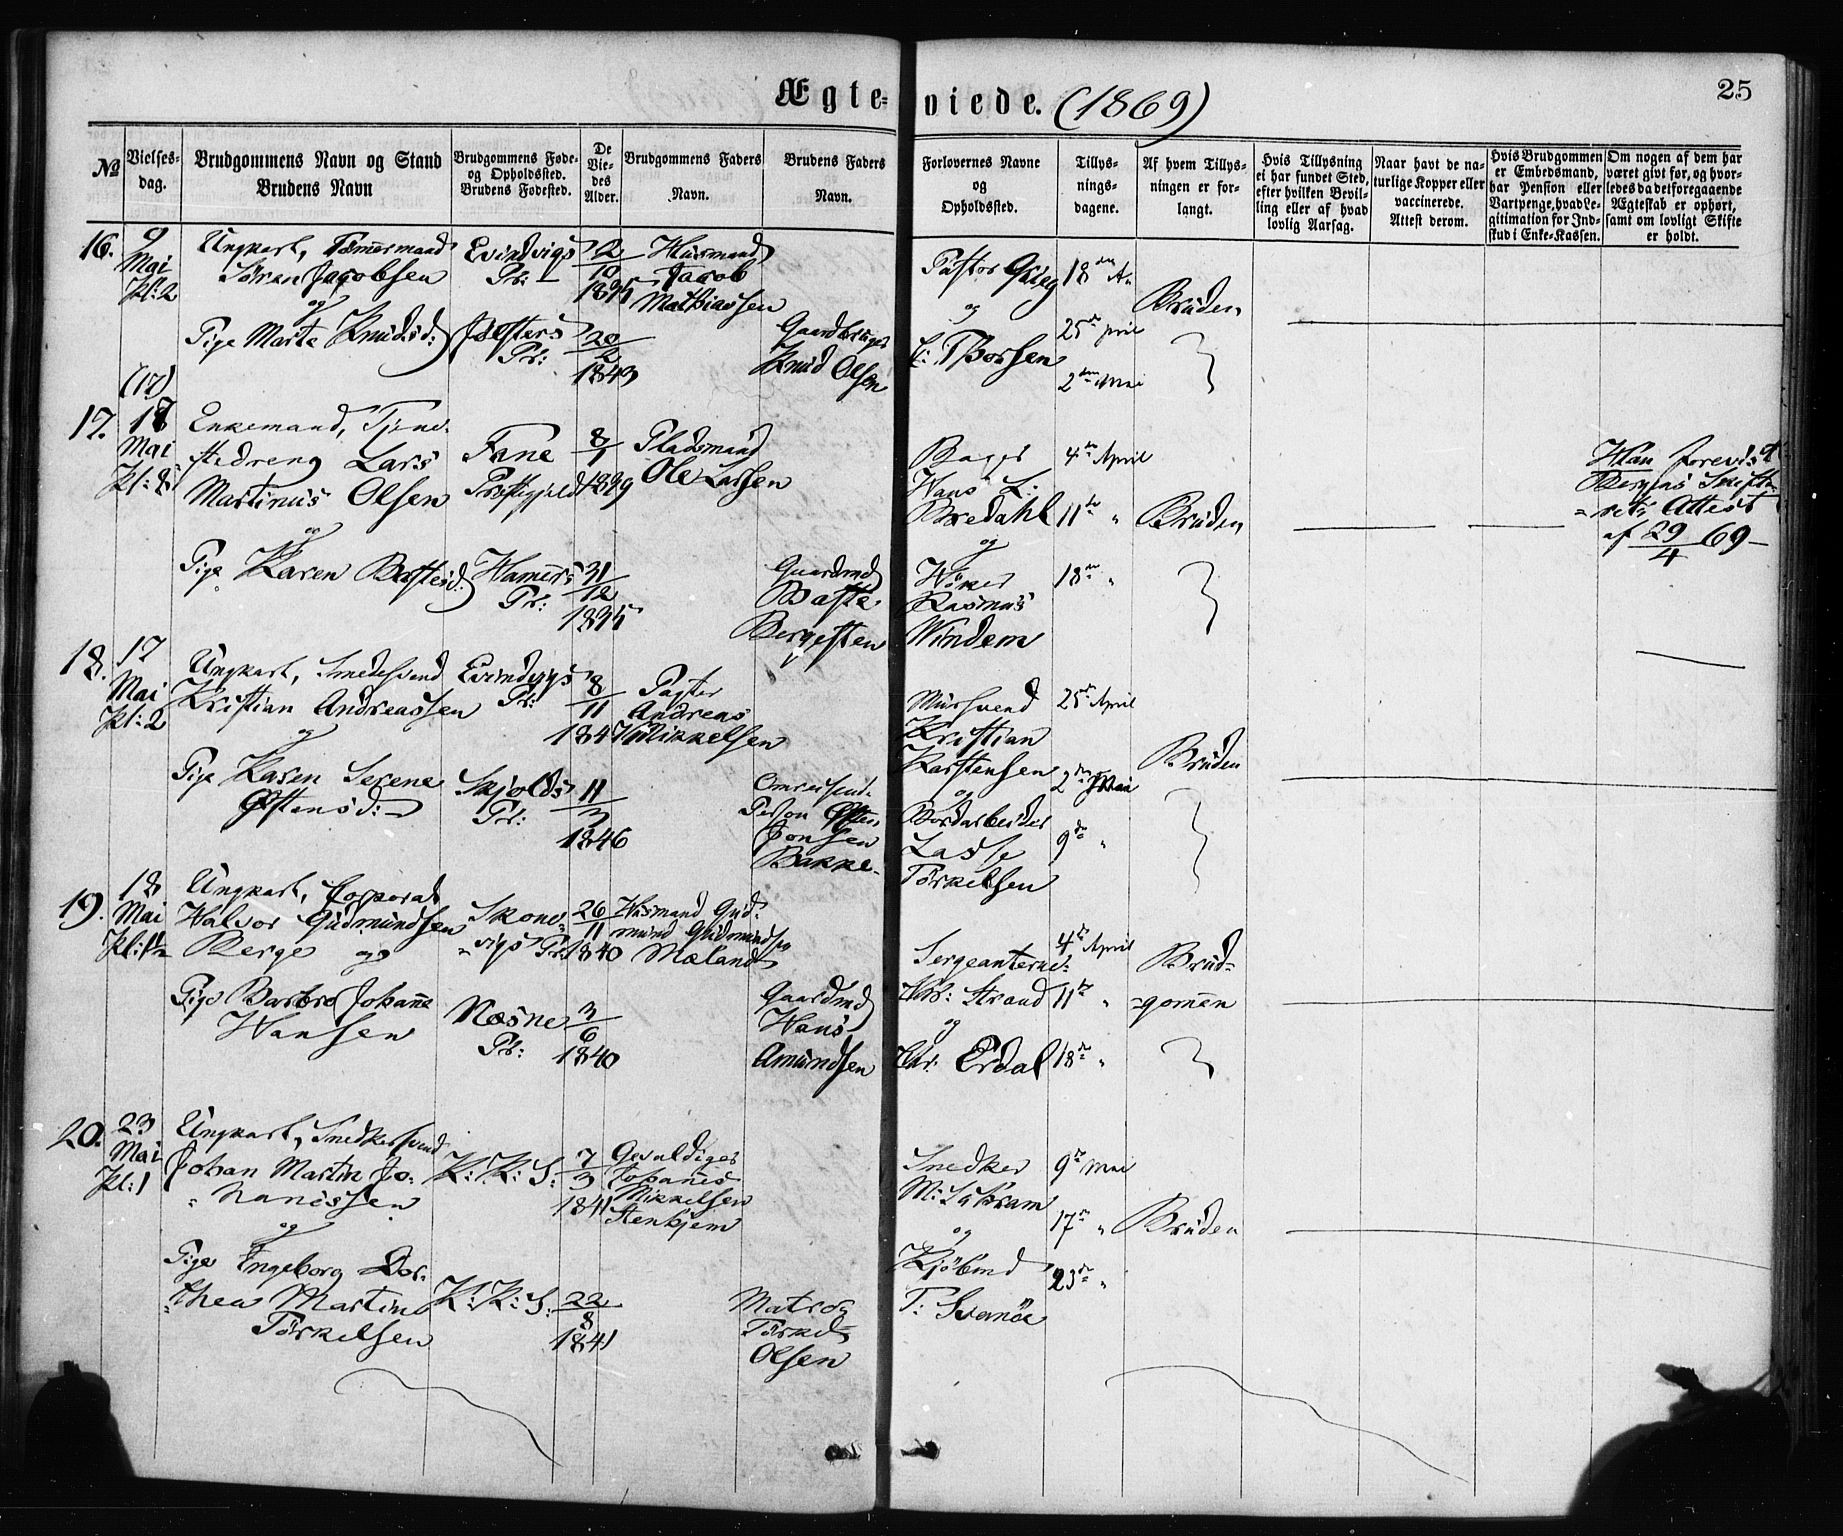 Ægteviede. (1869)
25
No
Vielses-
dag.
Brudgommens Navn og Stand
Brudens Navn
Brudgommens Føde-
og Opholdssted.
Brudens Fødested.
De
Vie-
des
Alder.
Brudgommens Faders
Navn.
Brudens Faders
Navn.
Forlovernes Navne
og
Opholdssted.
Tillys-
nings-
dagene.
Af hvem Tillys-
ningen er for-
langt.
Hvis Tillysning
ei har fundet Sted,
efter hvilken Bevil-
ling eller af hvad
lovlig Aarsag.
Naar havt de na-
turlige Kopper eller
vaccinerede.
Attest derom.
Hvis Brudgommen
er Embedsmand,
har Pension eller
Vartpenge, hvad Le-
gitimation for Ind-
skud i Enke-Kassen.
Om nogen af dem har
været givt før, og hvor-
ledes da det foregaaende
Ægteskab er ophørt,
samt om lovligt Skifte
er holdt.
16.
9
Mai
Kl: 2
Ungkarl, Tømmermand
Søren Jacobsen
og
Pige Marte Knudsd:
Evindvigs
Pr:
Jølsters
Pr:
2/10
20/2
1843
Husmand
Jacob
Mathiassen
Gaardbruger
Knud Olsen
Pastor Grieg
og
L: Thorsen
18de A-
25de pril
2den Mai
Bruden
17.
(17)
Mai
Kl: 8
Enkemand, Tjene-
stedreng Lars
Martinus Olsen
og
Pige Karen Bastesd:
Fane
Præstegjeld
Hamers
Pr:
8/1
31/12
Pladsmand
Ole Larsen
Gaardmd
Baste
Bergesten
Bager
Hans L:
Bredahl
og
Høker
Rasmus
Windem
4de April
11te "
18de "
Bruden
Han foreviste
Bergens Skifte-
rets Attest
af 29/4 69 -
18.
17
Mai
Kl: 2
Ungkarl, Smedesvend
Kristian Andreassen
og
Pige Karen Serene
Østensd:
Evindvigs
Pr:
Skjolds
Pr:
8/11
1847
11/3
1846
Pagter
Andreas
Mikkelsen
Omreisend-
Person Østen
Jonsen
Bakke
Mursvend
Kristian
Karstensen
og
Bordarbeider
Lasse
Torkelsen
25de April
2den Mai
9de "
Bruden
19.
18
Mai
Ungkarl, Corporal
Halvor Gudmundsen
Berge og
Pige Barbro Johanne
Hansen
Skone-
vigs Pr:
Næsne
Pr:
26/11
1840
3/6
1840
Husmand Gud-
mund Gudmundsen
Mæland
Gaardmd
Hans
Amundsen
Sergeanterne:
Strand
og
Chr: Erdal
4de April
11te "
18de "
Brud-
gommen
20.
23
Mai
Kl: 1
Ungkarl, Snedkersvend
Johan Martin Jo-
hanessen
og
Pige Ingeborg Dor-
thea Martine
Torkelsen
K: K: S:
K: K: S:
7/3
1841
22/8
1841
Gevaldiger
Johannes
Mikkelsen
Stenkjem
Matros
Torkel
Olsen
Snedker
og
Kjøbmd
T: Svanøe
9de Mai
17de "
23de "
Bruden